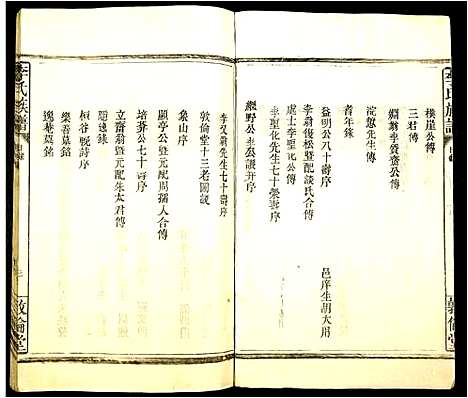 李氏族譜
樸崖公傳
三君傳
嫻翁李質齋公傳
浣憩先生傳
青年錄
益明公八十壽序
邑庠生胡大用
李翁復松暨配談氏合傳
處士李聖化公傳
李聖化先生七十榮壽序
繼野公
李公讓升序
李又嵐先生七十壽序
敦倫堂十三老圖說
象山序
顧亭公暨元配周孺人合傳
培芥公七十壽序
立齋翁暨元配朱太君傳
隨遠錄
桓谷晚詩序
樂吾墓銘
逸菴墓銘
李氏族譜
敦倫堂
敦倫堂